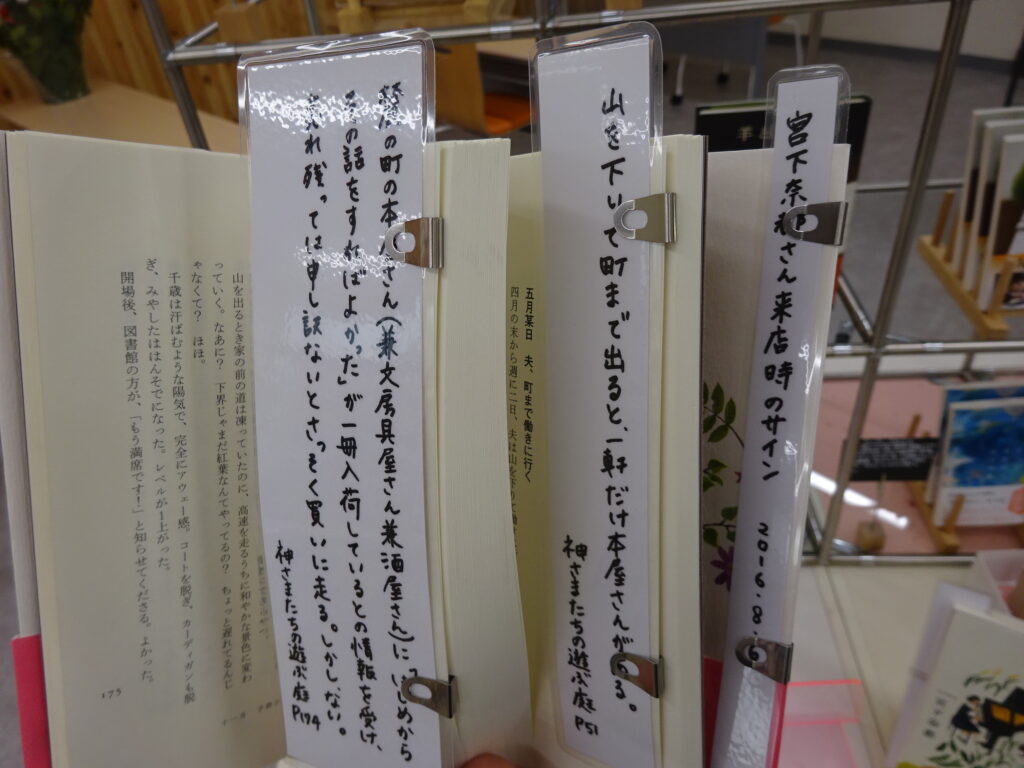 宮下奈都さん来店時のサイン 2016.8.6
山を下りて町まで出ると、一軒だけ本屋さんがある。
神さまたちの遊ぶ庭 P51
五月某日 夫、町まで働きに行く
四月の末から週に二日、夫は山を下りて
麓の町の本屋さん(兼文房具屋さん兼酒屋さん)に「はじめから
その話をすればよかった」が一冊入荷しているとの情報を受け、
売れ残っては申し訳ないとさっそく買いに走る。しかしない。
神さまたちの遊ぶ庭 P174
山を出るとき家の前の道は凍っていたのに、高速を走るうちに和やかな景色に変わ
っていく。なあに? 下界じゃまだ紅葉なんてやってるの? ちょっと遅れてるんじ
ゃなくて? ほほ。
千歳は汗ばむような陽気で、完全にアウェー感。コートを脱ぎ、カーディガンも脱
ぎ、みやしたははんそでになった。レベルが1上がった。
開場後、図書館の方が、「もう満席です!」と知らせてくださる。よかった。
175